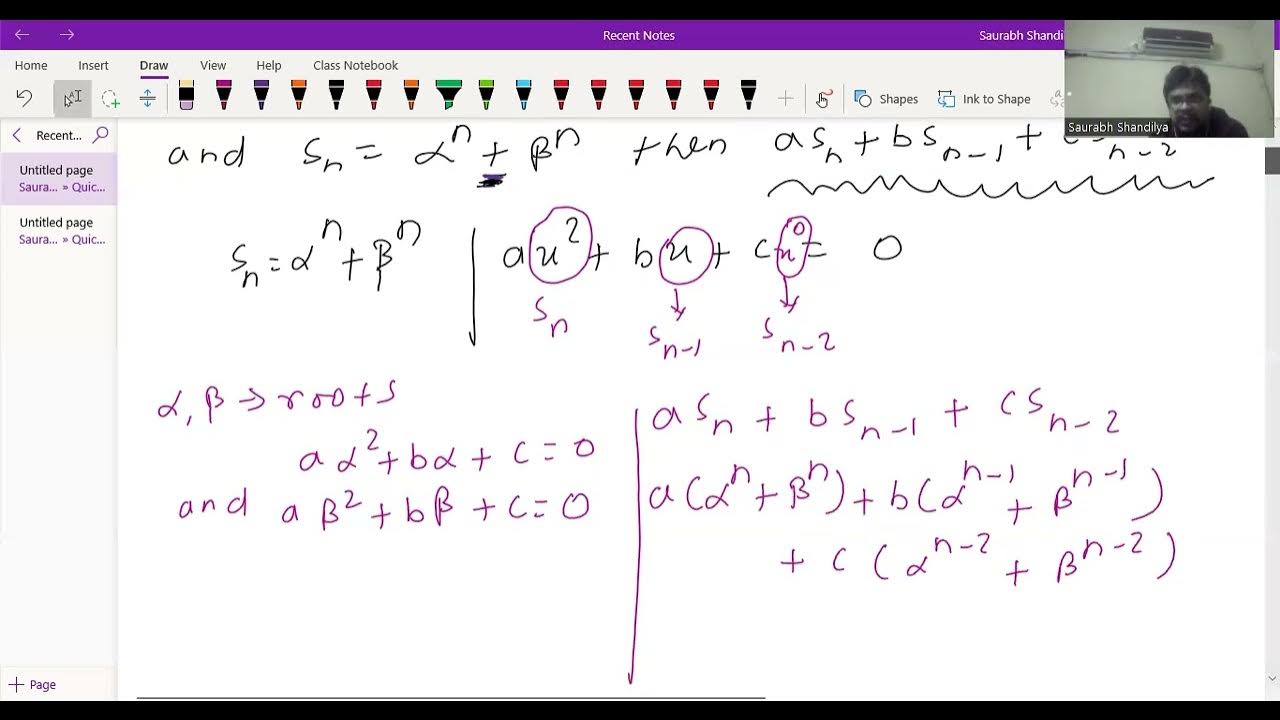 Recent Notes
Saurabh Shandi
Home Insert Draw View Help Class Notebook
Shapes Ink to Shape
Saurabh Shandilya
Recent...
Untitled page
Saura... » Quic...
Untitled page
Saura... » Quic...
Page
and Sₙ = αⁿ + βⁿ then aSₙ + bSₙ₋₁ + cSₙ₋₂
Sₙ = αⁿ + βⁿ | ax² + bx + cx⁰ = 0
Sₙ Sₙ₋₁ Sₙ₋₂
α, β → roots
aα² + bα + c = 0
and aβ² + bβ + c = 0
aSₙ + bSₙ₋₁ + cSₙ₋₂
a(αⁿ + βⁿ) + b(αⁿ⁻¹ + βⁿ⁻¹)
+ c(αⁿ⁻² + βⁿ⁻²)